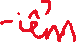 -iêm